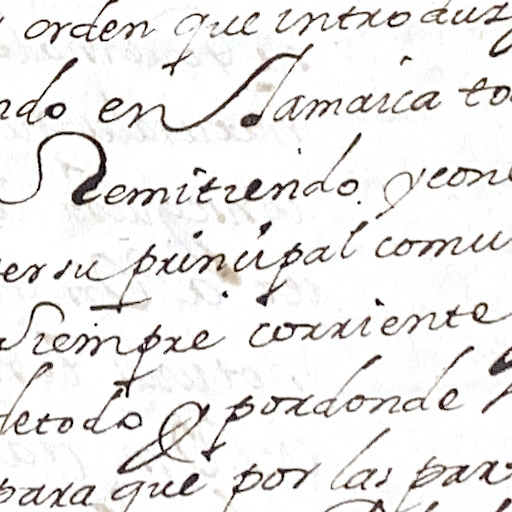 orden que introduz
ndo en Jamaica to
Remitiendo y con
er su principal comu
siempre corriente
detodo y pordonde
para que por las par